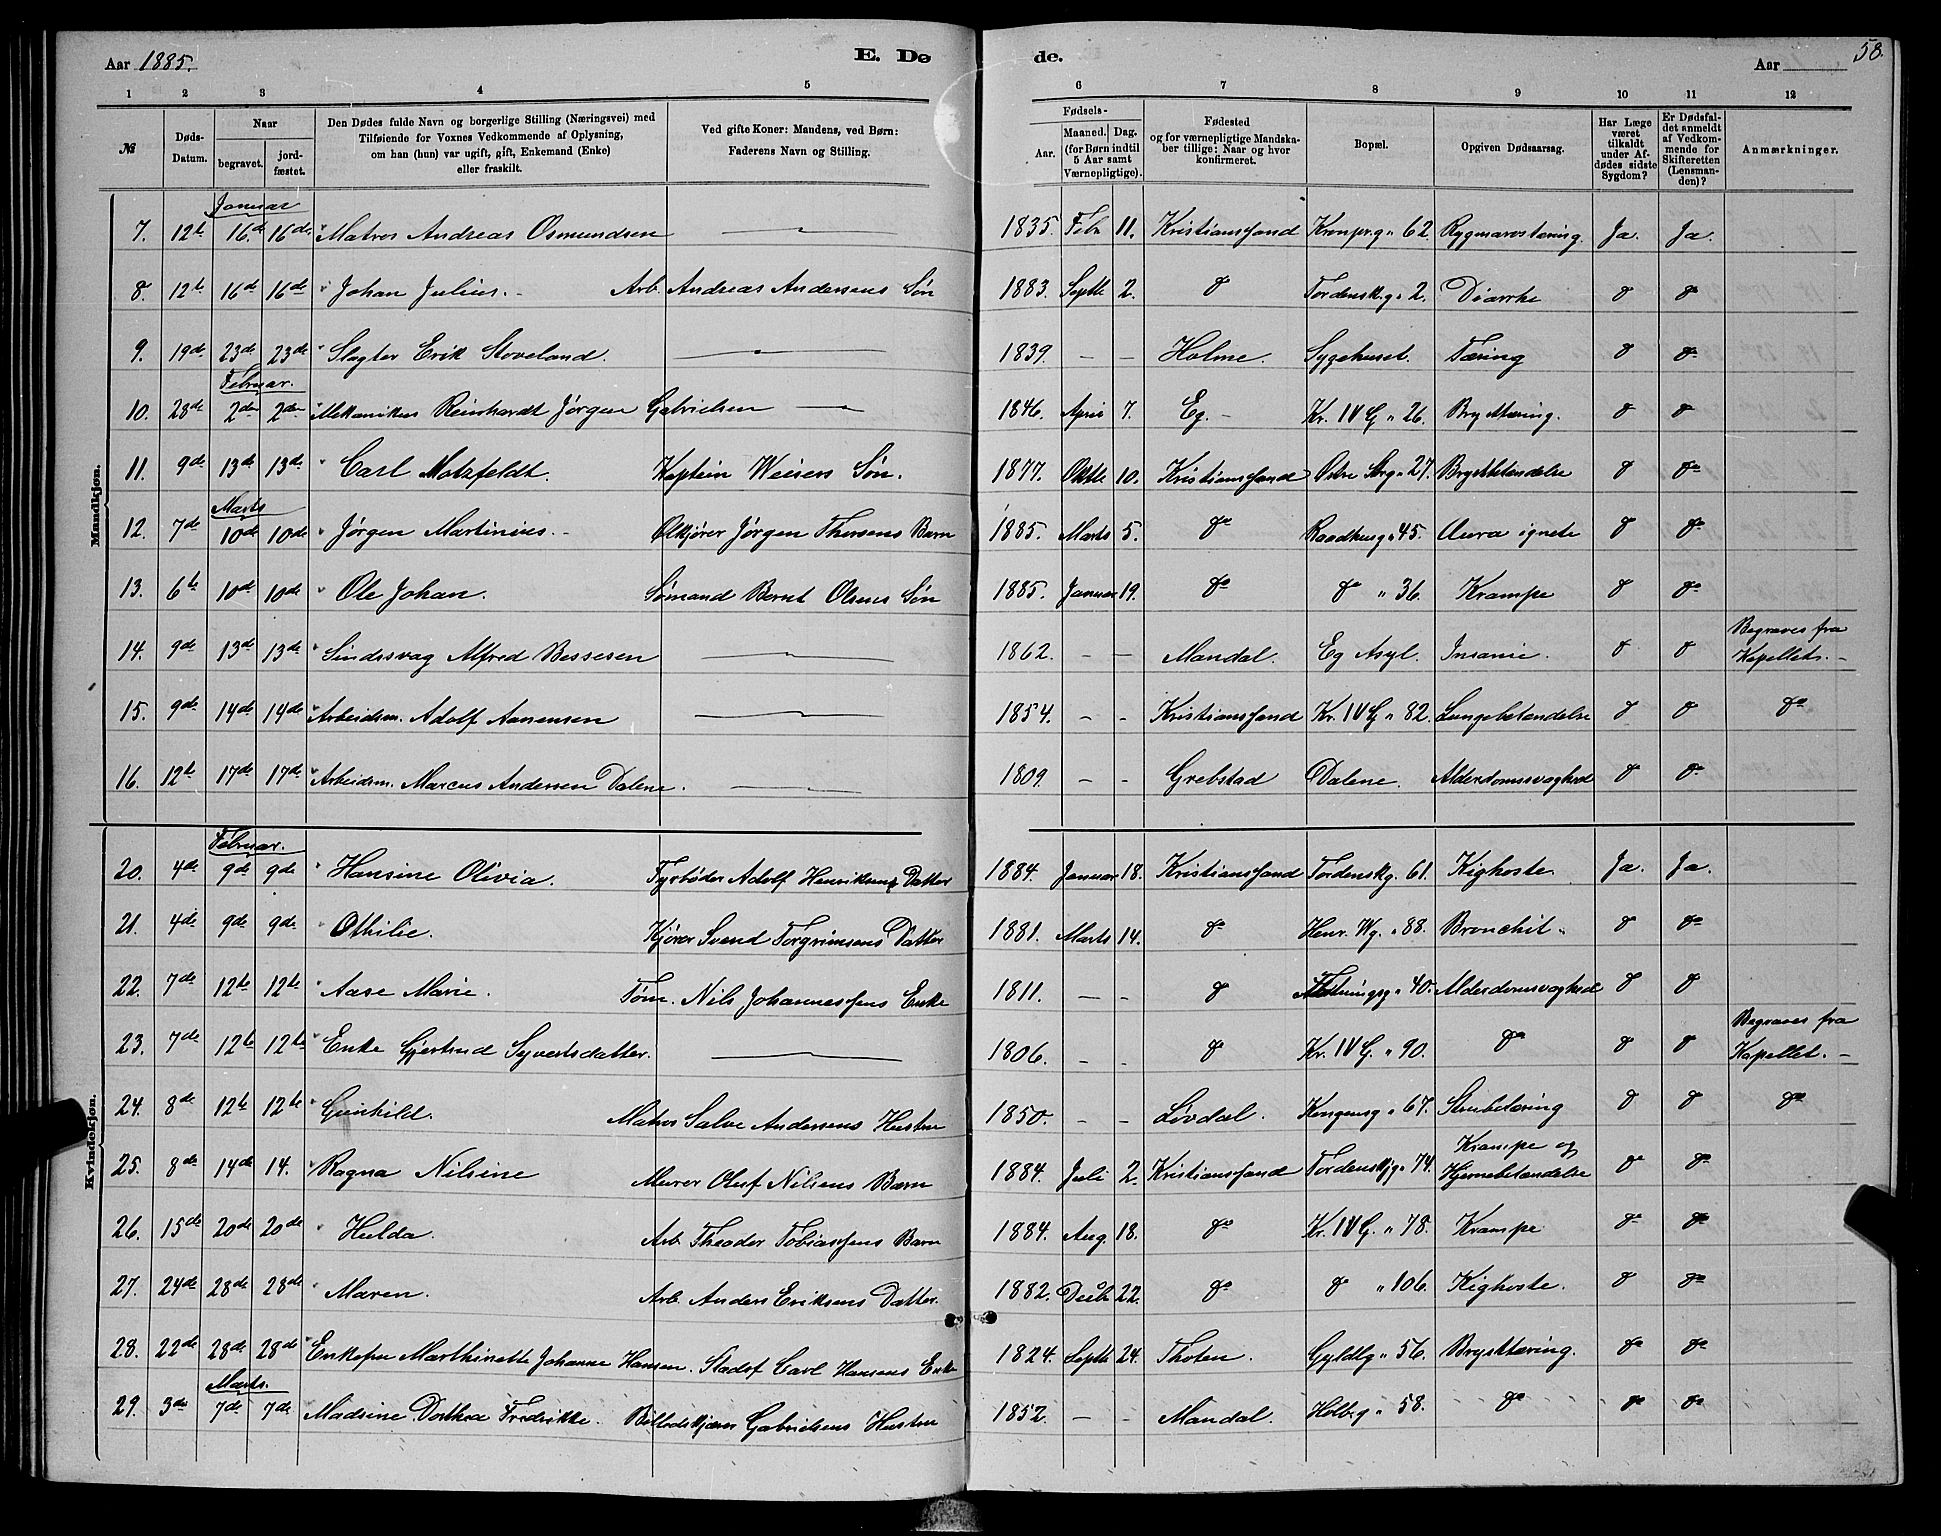 Aar 1885. E. Dø de. Aar 58.
1 2 3 4 5 6 7 8 9 10 11 12
№ Døds-Datum. Naar begravet. jordfæstet. Den Dødes fulde Navn og borgerlige Stilling (Næringsvei) med Tilføiende for Voxnes Vedkommende af Oplysning, om han (hun) var ugift, gift, Enkemand (Enke) eller fraskilt. Ved gifte Koner: Mandens, ved Børn: Faderens Navn og Stilling. Fødsels- Aar. Maaned. Dag. (for Børn indtil 5 Aar samt Værnepligtige). Fødested og for værnepligtige Mandskaber tillige: Naar og hvor konfirmeret. Bopæl. Opgiven Dødsaarsag. Har Læge været tilkaldt under Afdødes sidste Sygdom? Er Dødsfaldet anmeldt af Vedkommende for Skifteretten (Lensmanden)? Anmærkninger.
Mandkjøn.
Januar
7. 12te 16de 16de Matros Andreas Osmundsen — 1835. Febr 11. Kristianssand Kronpr.g. 62. Rygmarvstæring. Ja. Ja.
8. 12te 16de 16de Johan Julius. - Arb. Andreas Andersens Søn 1883. Septb 2. do Tordensk.g. 2. Diarrhe do do
9. 19de 23de 23de Slagter Erik Stoveland. — 1839. - - Holme. Sygehuset. Tæring do do
Februar.
10. 28de 2den 2den Mekanikus Reinhardt Jørgen Gabrielsen — 1846. April 7. Eg. - Kr. IV G " 26. Brysttæring. do do
11. 9de 13de 13de Carl Motzfeldt. Kaptein Weisens Søn. 1877. Oktb 10. Kristianssand Østre Strg " 27. Brystbetændelse do do
Marts
12. 7de 10de 10de Jørgen Martinius. - Ølkjører Jørgen Thorsens Barn 1885. Marts 5. do Raadhusg " 45. Aura ignete do do
13. 6te 10de 10de Ole Johan. Sømand Bernt Olsens Søn 1885. Januar 19. do do " 36. Krampe do do
14. 9de 13de 13de Sindssvag Alfred Bessesen — 1862. - - Mandal. Eg Asyl. Insanie. do do Begraves fra Kapellet. -
15. 9de 14de 14de Arbeidsm. Adolf Aanensen — 1854. - - Kristianssand Kr. IV G " 82. Lungebetændelse do do do
16. 12te 17de 17de Arbeidsm. Marcus Andersen Dalene. — 1809. - - Grebstad Dalene. Alderdomssvaghed do do
Kvindekjøn.
Februar.
20. 4de 9de 9de Hansine Olivia. Fyrbøder Adolf Henriksens Datter 1884. Januar 18. Kristianssand Tordenskg. 61. Kighoste. Ja. Ja.
21. 4de 9de 9de Othilie. Kjører Svend Torgrimsens Datter 1881. Marts 14. do Henr. Wg. " 88. Bronchit do do
22. 7de 12te 12te Aase Marie. Tøm. Nils Johannessens Enke 1811. - - do 40. Alderdomsvaghed do do
23. 7de 12te 12te Enke Gjertrud Syvertsdatter. — 1806. - - do Kr. IV G. " 90. do do do Begraves fra Kapellet. -
24. 8de 12te 12te Gunhild. Matros Salve Andersens Hustru 1850. - - Løvdal. Kongensg " 67. Strubetæring do do do
25. 8de 14de 14. Ragna Nilsine Murer Oluf Nilsens Barn 1884. Juli 2. Kristianssand Tordenskjg " 74. Krampe og Hjernebetændelse do do
26. 15de 20de 20de Hulda. Arb. Theodor Tobiassens Barn 1884. Aug. 18. do Kr. IV G. " 78. Krampe do do
27. 24de 28de 28de Maren. Arb. Anders Eriksens Datter. 1882. Decbr 22. do do " 106. Kighoste. do do
28. 22de 28de 28de Enkefru Marthinette Johanne Hansen. Stadsf Carl Hansens Enke 1824. Septb 24. Thoten. Gyldlg " 56. Brysttæring. do do
Marts.
29. 3die 7de 7de Madsine Dorthea Fredrikke. Gabrielsens Hustru 1852. - - Mandal. Holbg " 58. do do do